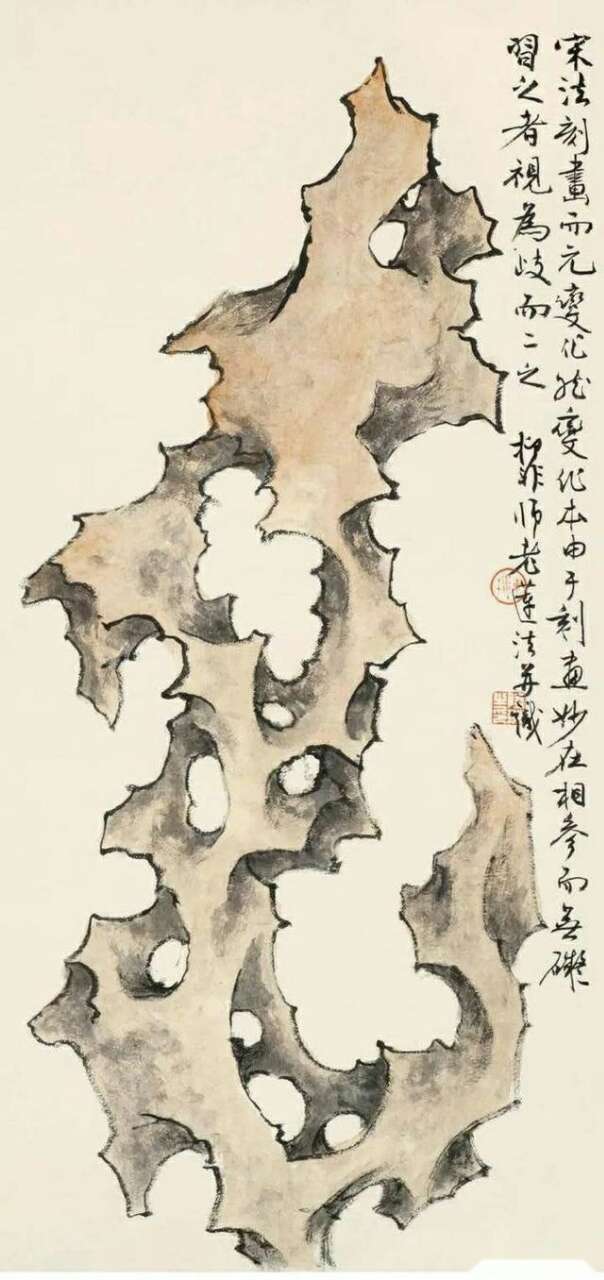 宋法刻畫而元變化然變化本由于刻畫妙在相參而無礙
習之者視為歧而二之 柳非師老蓮法并識